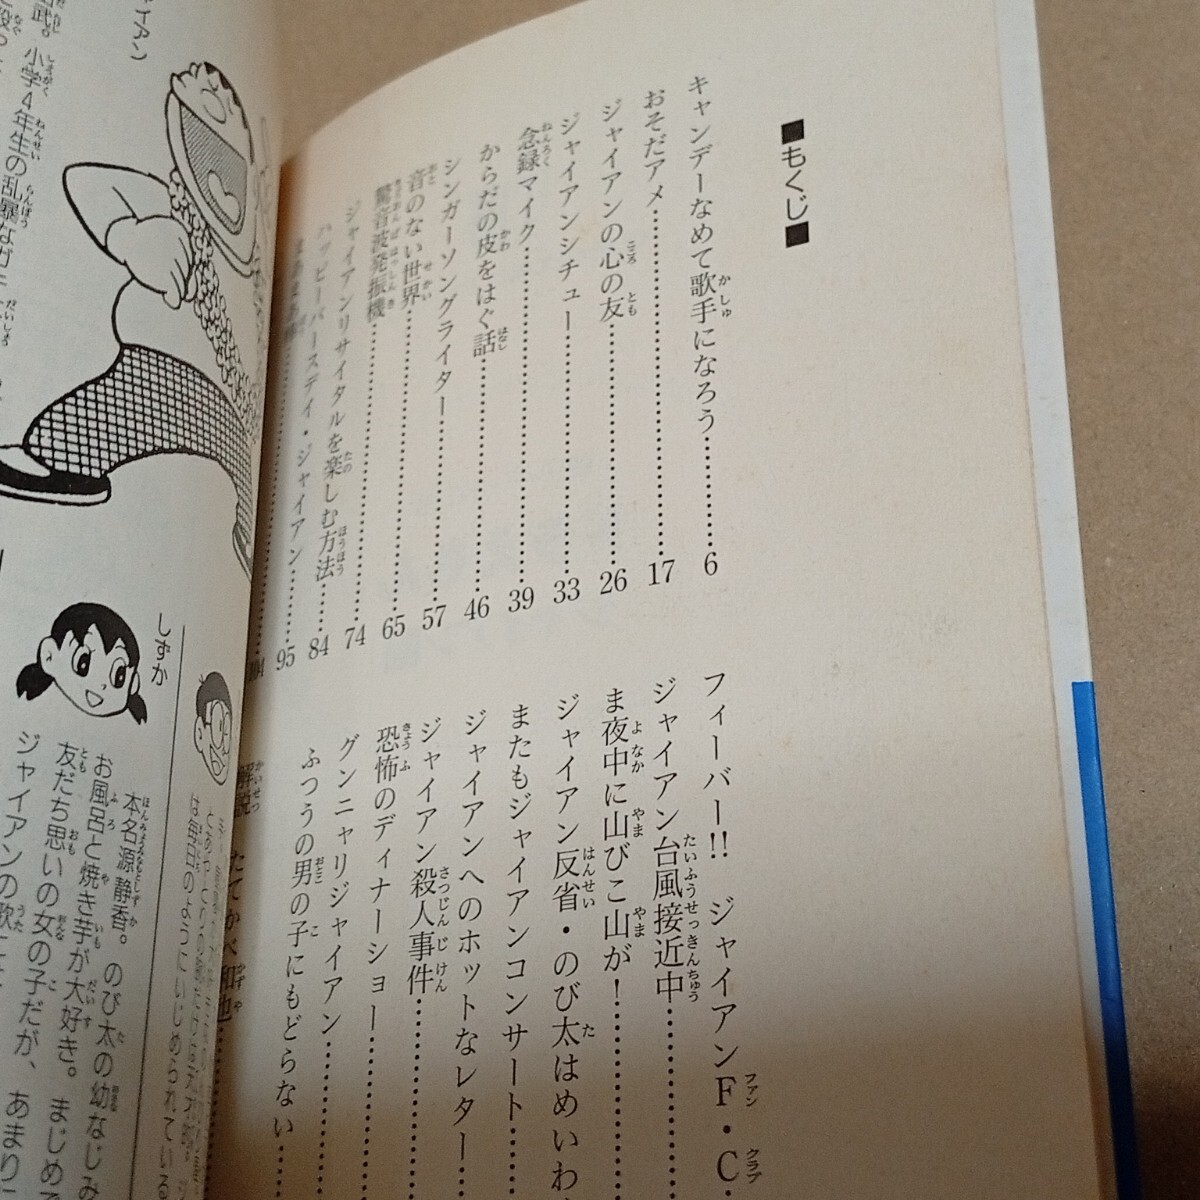 ■もくじ■
キャンデーなめて歌手になろう……………6
おそだアメ……………17
ジャイアンの心の友……………26
ジャイアンシチュー……………33
念録マイク……………39
からだの皮をはぐ話……………46
シンガーソングライター……………57
音のない世界……………65
驚音波発振機……………74
ジャイアンリサイタルを楽しむ方法……84
ハッピーバースデイ・ジャイアン……………95
まあまあ棒……………104
フィーバー!! ジャイアンF・C
ジャイアン台風接近中……………
ま夜中に山びこ山が!……………
ジャイアン反省・のび太はめいわ
またもジャイアンコンサート……
ジャイアンへのホットなレター…
ジャイアン殺人事件……………
恐怖のディナーショー……………
グンニャリジャイアン……………
ふつうの男の子にもどらない……
解説 たてかべ和也……………
イアン
武。小学4年生の乱暴なガキ
しずか
本名源静香。のび太の幼なじみ
お風呂と焼き芋が大好き。まじめで
友だち思いの女の子だが、あまり
ジャイアンの歌
は毎日のようにいじめられている